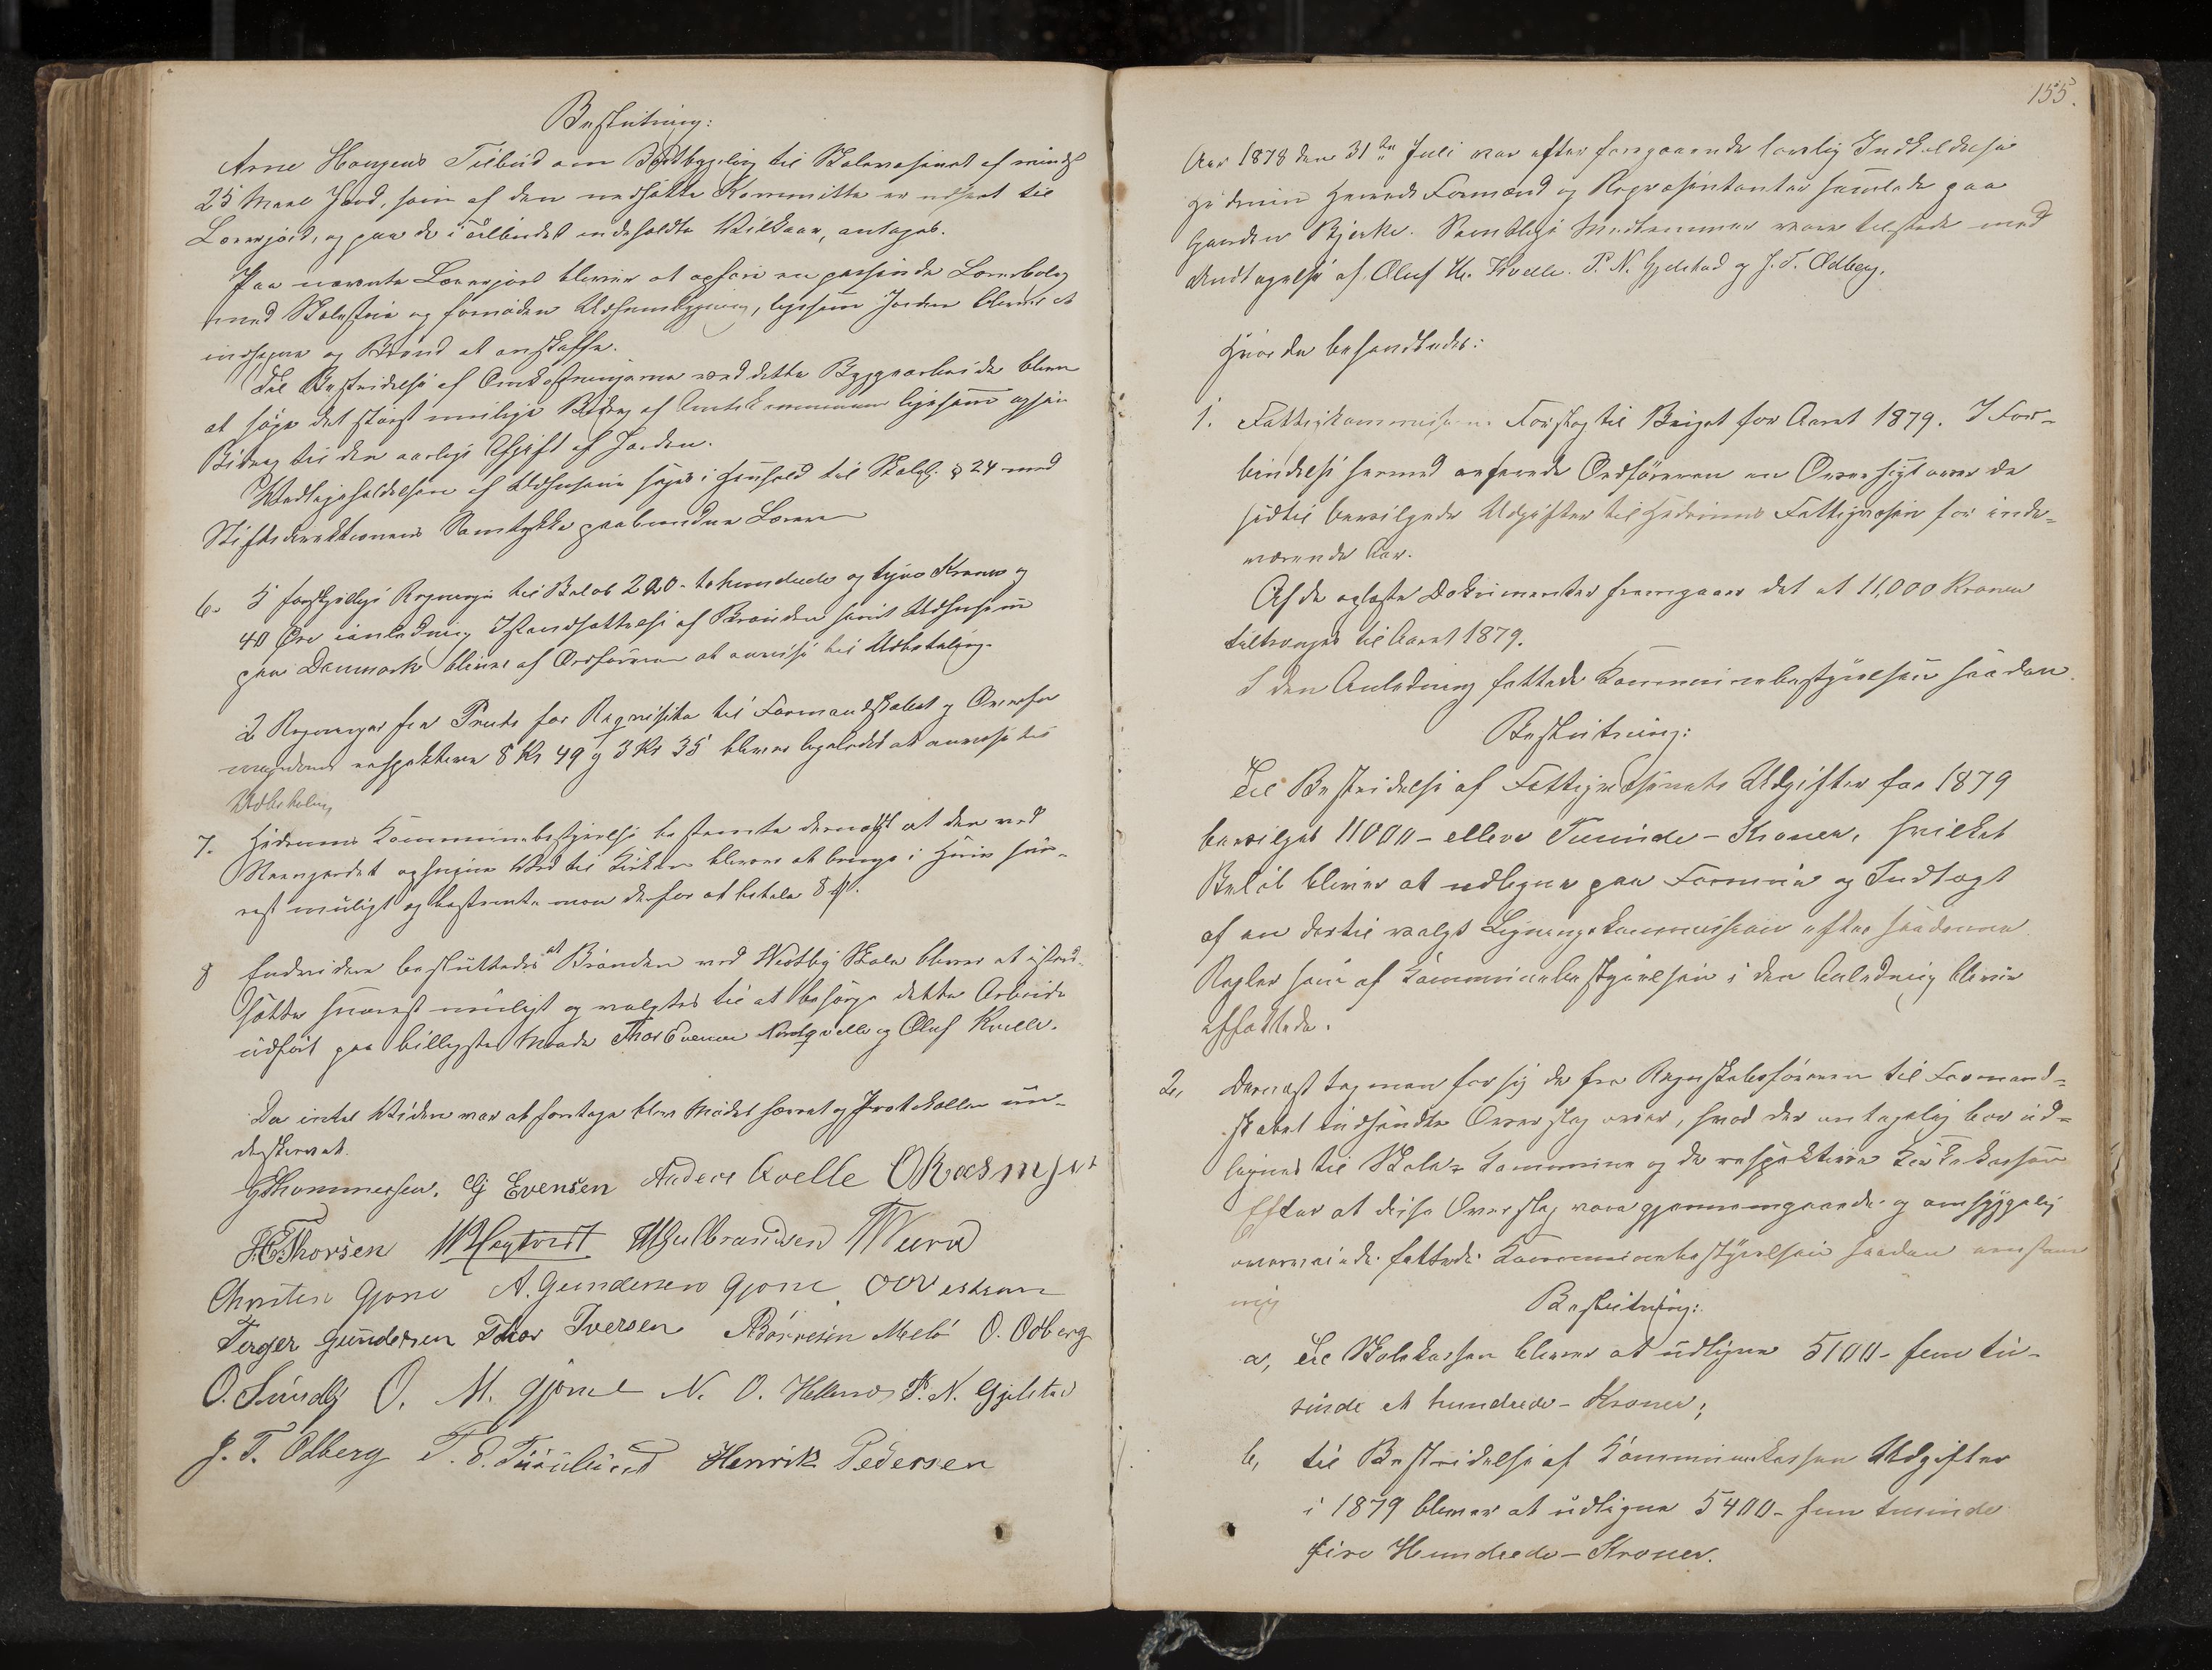 Beslutning:
Arne Haugens Tilbud om Bortbygsling til Skolevæsenet af mindst
25 Maal Jord, som af den nedsatte Kommitte er udseet til
Lærerjord, og paa de i Tilbudet indeholdte Vilkaar, antages.
Paa nævnte Lærerjord bliver at opføre en passende Lærerbolig
med Skolestue og fornøden Udhusbygning, ligesom Jorden bliver at
indhegne og Brønd at anskaffe.
Til Bestridelse af Omkostningerne ved dette Byggearbeide bliver
at søge det størst mulige Bidrag af Amtskommunen ligesom ogsaa
Bidrag til den aarlige Afgift af Jorden.
Vedligeholdelsen af Udhusene søges i Henhold til Skolel. § 24 med
Stiftsdirektionens Samtykke paabyrdet Læreren
6. 5 forskjellige Regninger til Beløb 220 - to hundrede og tyve Kroner og
40 Øre i anledning Istandsættelse af Brønden samt Udhusene
paa Danmark bliver af Ordføreren at anvise til Udbetaling.
2 Regninger fra Trude for Reqvisita til Formandskabet og Overfor
mynderiet respektive 8 Kr 49 og 3 Kr 35 bliver ligeledes at anvise til
Udbetaling
7. Hedrums Kommunebestyrelse bestemte dernæst at den ved
ophugne Ved til Kirken bliver at bringe i Huus sna-
rest muligt og bestemte man derfor at betale 8
8 Endvidere besluttedes at Brønden ved Vestby Skole bliver at istand-
sætte snarest muligt og valgtes til at besørge dette Arbeide
udført paa billigste Maade Thor Evensen Nordqvelle og Oluf Kvelle.
Da intet Videre var at foretage blev Mødet hævet og Protokollen un-
derskrevet.
G Thommessen. G Evensen Anders Qvelle O Rasmussen
H Thorsen W Høytvedt M Gulbrandsen
Christen Gjone A. Gundersen Gjone O O Vestrum
Terger Gundersen Thor Iversen A Børresen Melø O. Odberg
O. Sundby O. M. Gjone N. O. Hellenæs P. N. Gjelstad
J. T. Odberg T. E. Henrik Pedersen
155.
Aar 1878 den 31te Juli var efter foregaaende lovlig Indkaldelse
Hedrum Herreds Formænd og Repræsentanter samlede paa
Gaarden Bjerke. Samtlige Medlemmer vare tilstede med
Undtagelse af Oluf Kvelle. P. N. Gjelstad og J. T. Odberg.
Hvor da behandledes:
1. Fattigkommissionens Forslag til Budget for Aaret 1879. I For-
bindelse hermed anførte Ordføreren en Oversigt over de
hidtil bevilgede Udgifter til Hedrums Fattigvæsen for inde-
værende Aar.
Af de oplæste Dokumenter fremgaaer det at 11,000 Kroner
tiltrænges til Aaret 1879.
I den Anledning fattede Kommunebestyrelsen saadan
Beslutning:
Til Bestridelse af Fattigvæsenets Udgifter for 1879
bevilges 11000 - elleve Tusinde - Kroner, hvilket
Beløb bliver at udligne paa Formue og Indtægt
af en dertil valgt Ligningskommission efter saadanne
Regler som af Kommunebestyrelsen i den Anledning bliver
affattede.
2, Dernæst tog man for sig de fra Regnskabsføreren til Formand-
skabet indsendte Overslag over, hvad der antagelig bør ud-
lignes til Skole- Kommune og de respektive Kirkekasser
Efter at disse Overslag vare gjennemgaaede og omhyggelig
overveiede fattede Kommunebestyrelsen saadan
Beslutning:
a, Til Skolekassen bliver at udligne 5100 - fem tu-
sinde et hundrede - Kroner;
b, til Bestridelse af Kommunekassens Udgifter
i 1879 bliver at udligne 5400 - fem tusinde
fire Hundrede - Kroner.